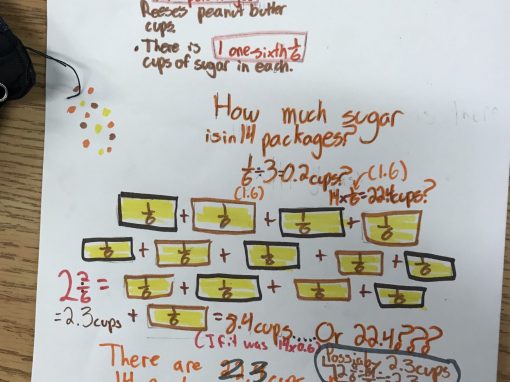 Reeses peanut butter
cups.
• There is 1 one sixth 1/6
cups of sugar in each.
How much sugar
is in 14 packages?
1/6 ÷ 3 = 0.2 cups? (1.6)
(1.6) 14 × 1/6 = 22.4 cups?
1/6 + 1/6 + 1/6 + 1/6
1/6 + 1/6 + 1/6 + 1/6 + 1/6
2 2/6 = 1/6 + 1/6 + 1/6 + 1/6
= 2.3 cups + 1/6 = 8.4 cups.... Or 22.4???
(If it was 14×0.6
There are 2.3 cups
Possibly 2.3 cups
14